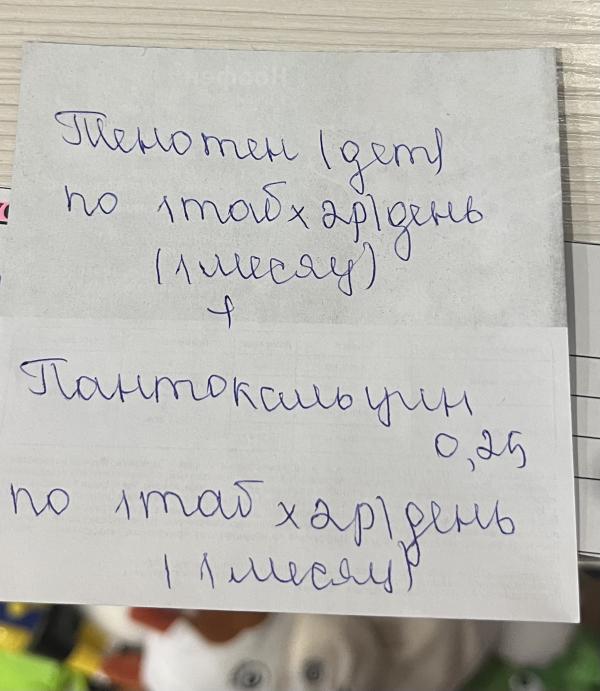 Тенотен (дет)
по 1таб х 2р\день
(1 месяц)
+
Пантокальцин
0,25
по 1таб х 2р\день
(1 месяц)